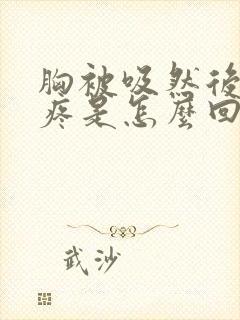 胸被吸然後
疼是怎麼回
武沙